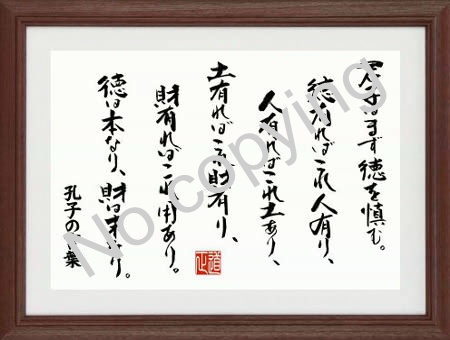 君子はまず徳を慎む。
徳有ればこれ人有り、
人有ればこれ土あり、
土有ればこれ財有り、
財有ればこれ用あり。
徳は本なり、財は末なり。
孔子の言葉
道正
No copying